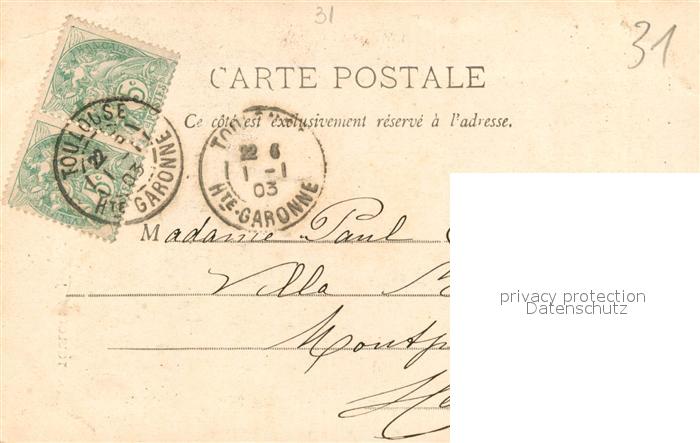 31
31
CARTE POSTALE
Ce côté est exclusivement réservé à l'adresse.
FRANÇAISE
5c
5c
TOULOUSE
22
1 03
HTE-GARONNE
TOU
22 6
1 -1
03
HTE-GARONNE
Madame Paul
Villa M
Montp
privacy protection
Datenschutz